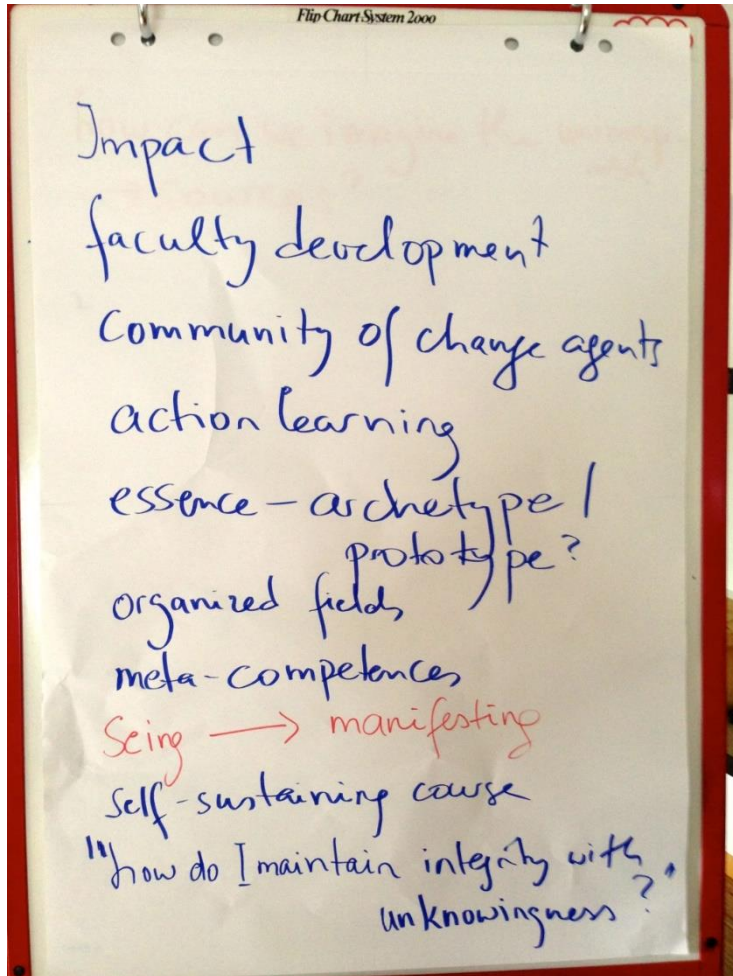 Flip Chart System 2000
Impact
faculty development
Community of change agents
action learning
essence – archetype /
prototype?
organized fields
meta-competences
Seing → manifesting
self-sustaining course
"how do I maintain integrity with
unknowingness?"